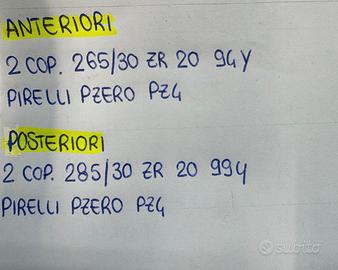 ANTERIORI
2 COP. 265/30 ZR 20 94Y
PIRELLI PZERO PZ4
POSTERIORI
2 COP. 285/30 ZR 20 99Y
PIRELLI PZERO PZ4
subito